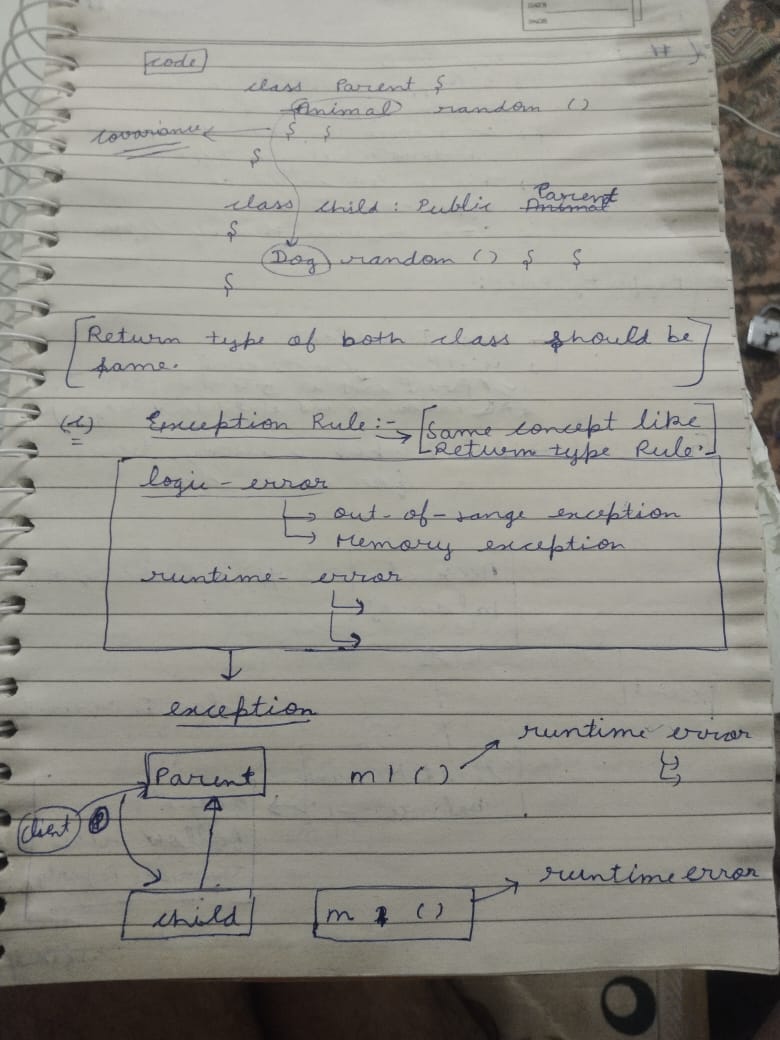 code
class Parent {
Animal random ()
covariance { }
}
class child : Public Parent
{
Dog random () { }
}
[Return type of both class should be
same.]
Exception Rule :- → [Same concept like
Return type Rule.]
logic-error
→ out-of-range exception
→ Memory exception
runtime-error
exception
runtime error
Parent m1()
client
runtime error
child m1()